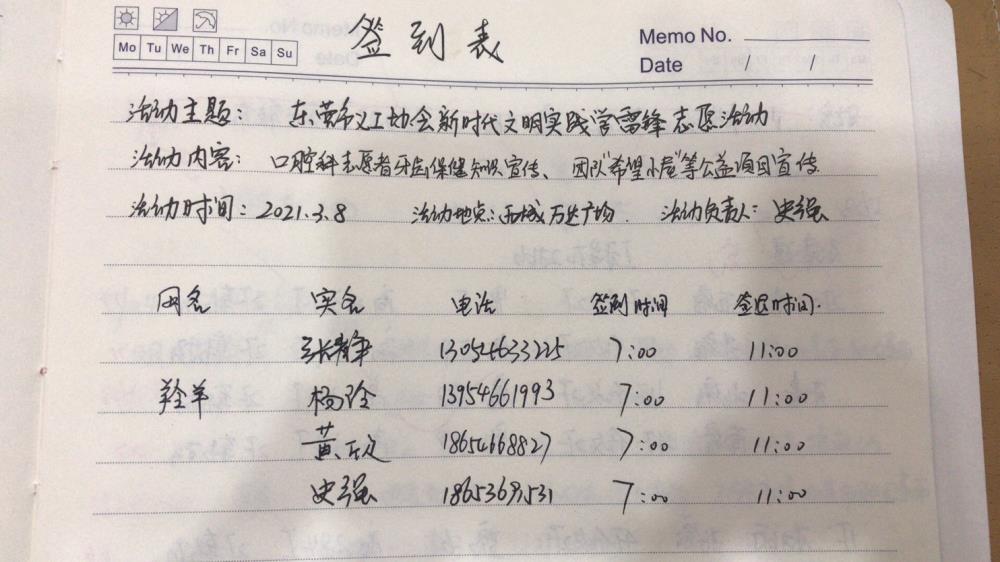 签到表
Mo Tu We Th Fr Sa Su
Memo No.
Date / /
活动主题：东营市义工协会新时代文明实践学雷锋志愿活动
活动内容：口腔科志愿者牙齿保健知识宣传、团队"希望小屋"等公益项目宣传
活动时间：2021.3.8 活动地点：西城万达广场 活动负责人：史强
网名 实名 电话 签到时间 签退时间
张静 13054633225 7:00 11:00
羊 杨玲 13954661993 7:00 11:00
黄欣 18654668827 7:00 11:00
史强 7:00 11:00